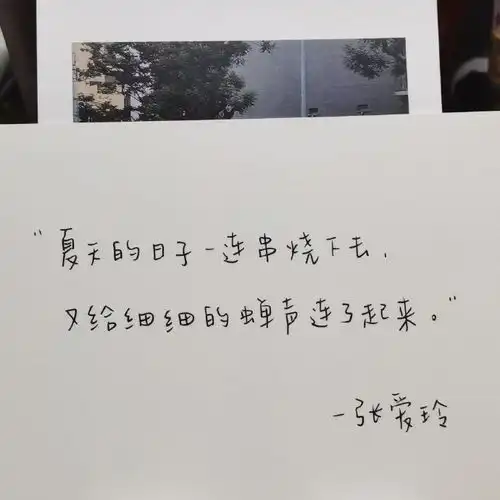 “夏天的日子一连串烧下去,
又给细细的蝉声连了起来。”
—张爱玲